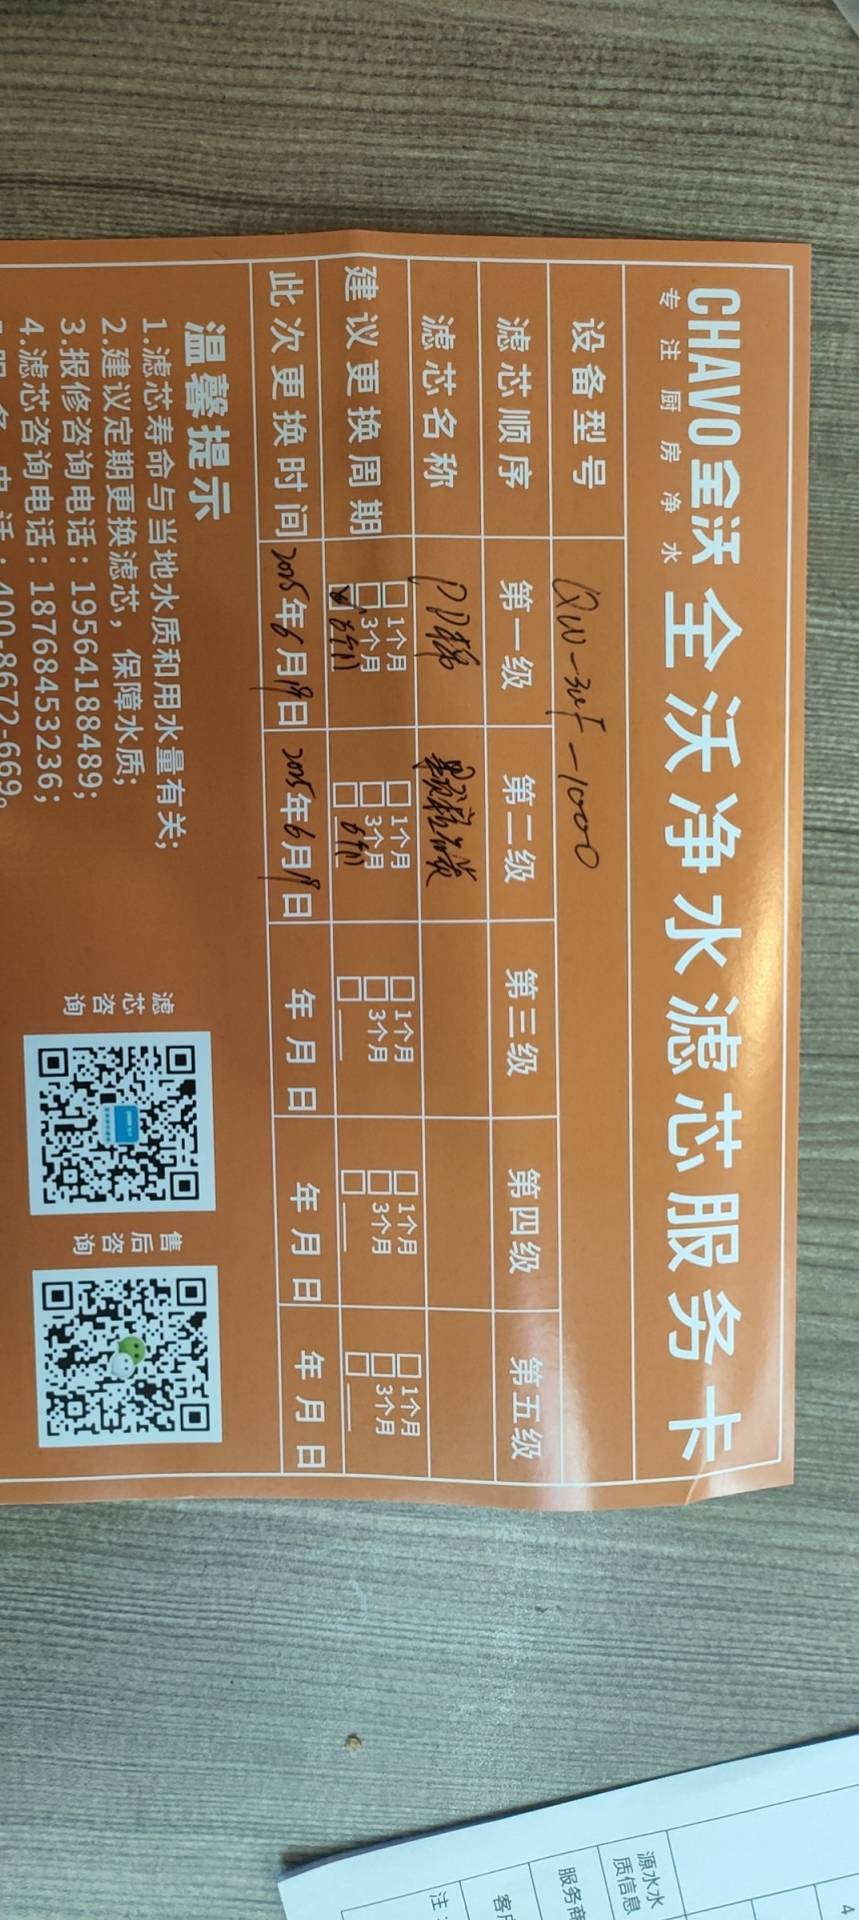 CHAVO全沃
专注厨房净水
全沃净水滤芯服务卡
设备型号 QW-3VF-1000
滤芯顺序 第一级 第二级 第三级 第四级 第五级
滤芯名称 PP棉
建议更换周期
□1个月 □1个月 □1个月 □1个月 □1个月
□3个月 □3个月 □3个月 □3个月 □3个月
此次更换时间 2025年6月19日 2025年6月19日 年月日 年月日 年月日
温馨提示
1.滤芯寿命与当地水质和用水量有关;
2.建议定期更换滤芯，保障水质;
3.报修咨询电话：19564188489;
4.滤芯咨询电话：18768453236;
电话：400-8672-669
滤芯咨询
售后咨询
源水水
质信息
服务商
客户
注
4